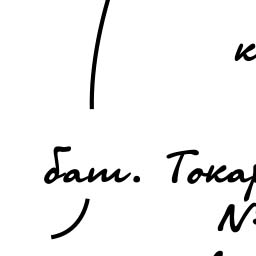 к
бат. Токар
№